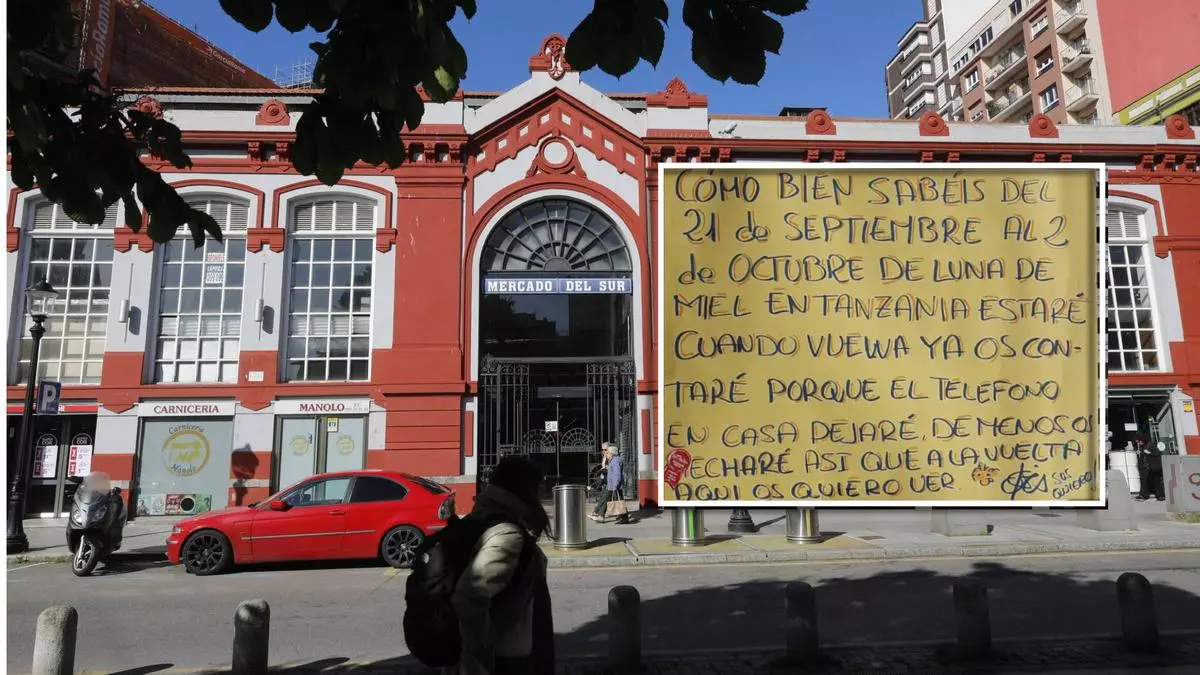 MERCADO DEL SUR
CARNICERIA
MANOLO
Carniceria
Manolo
P
CÓMO BIÉN SABÉIS DEL
21 de SEPTIEMBRE AL 2
de OCTUBRE DE LUNA DE
MIEL EN TANZANIA ESTARÉ
CUANDO VUELVA YA OS CON-
TARÉ PORQUE EL TELEFONO
EN CASA DEJARÉ, DE MENOS OS
ECHARÉ ASI QUE A LA VUELTA
AQUI OS QUIERO VER.
OS QUIERO!